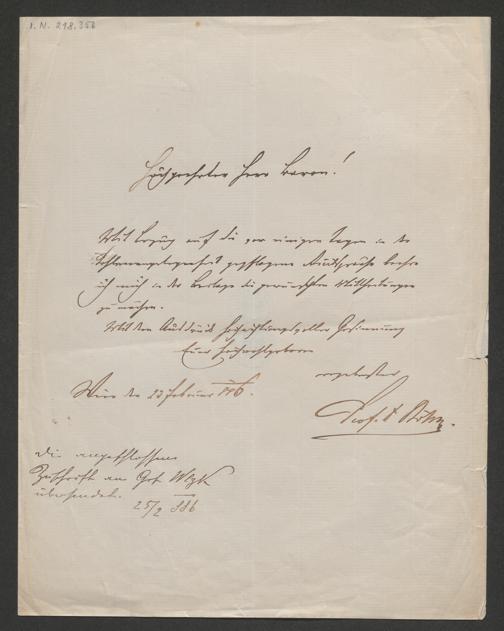 I. N. 218.356
Hochgeehrter Herr Baron!
Mit Bezug auf die vor einigen Tagen in der
gepflogene Rücksprache beehre
ich mich in der Beilage die gewünschten Mittheilungen
zu machen.
Mit dem Ausdruck hochachtungsvoller Gesinnung
Euer Hochwohlgeboren
ergebenster
Wien den 23 Februar 886.
Prof. Dr
Die angeschlossene
Zuschrift an
übersendet.
25/2 886